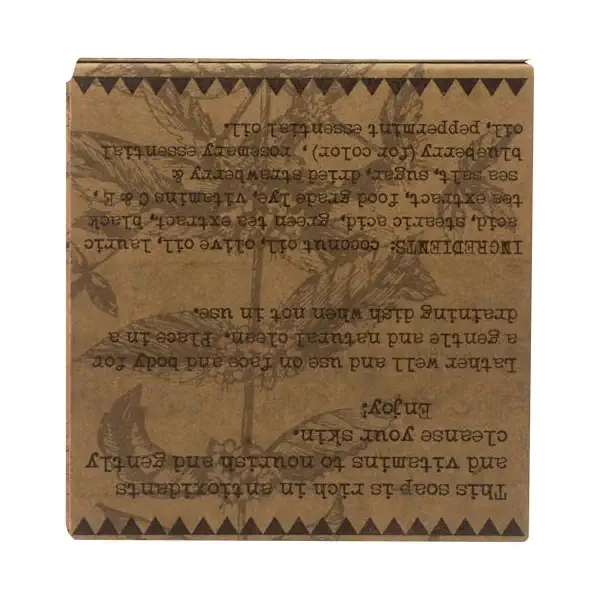 This soap is rich in antioxidants
and vitamins to nourish and gently
cleanse your skin.
Enjoy!
Lather well and use on face and body for
a gentle and natural clean. Place in a
draining dish when not in use.
INGREDIENTS: coconut oil, olive oil, lauric
acid, stearic acid, green tea extract, black
tea extract, food grade lye, vitamins C & E,
sea salt, sugar, dried strawberry &
blueberry (for color), rosemary essential
oil, peppermint essential oil.